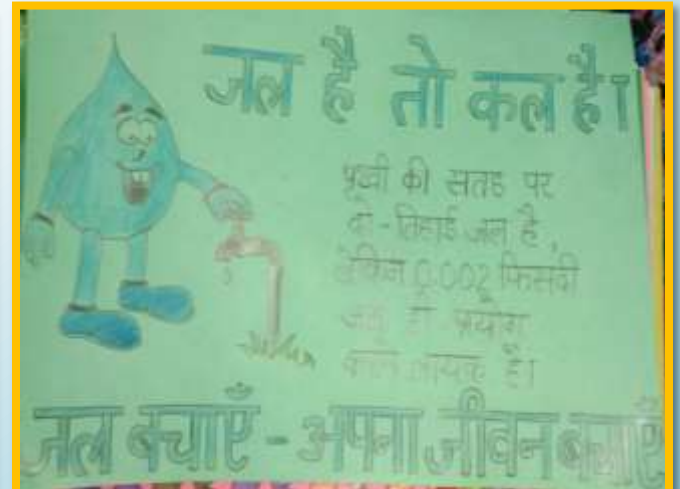 जल है तो कल है।
पृथ्वी की सतह पर
दो-तिहाई जल है,
लेकिन 0.002 फिसदी
जल ही प्रयोग
करने लायक है।
जल बचाएँ - अपना जीवन बचाएँ